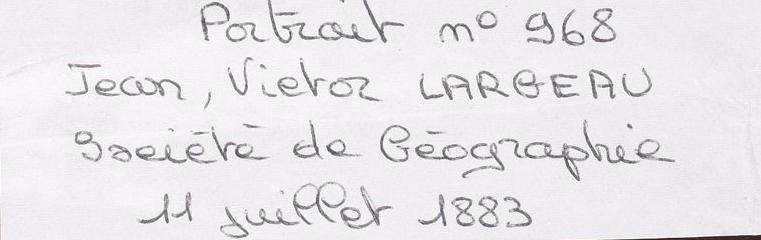 Portrait nº 968
Jean, Victor LARGEAU
Société de Géographie
11 juillet 1883